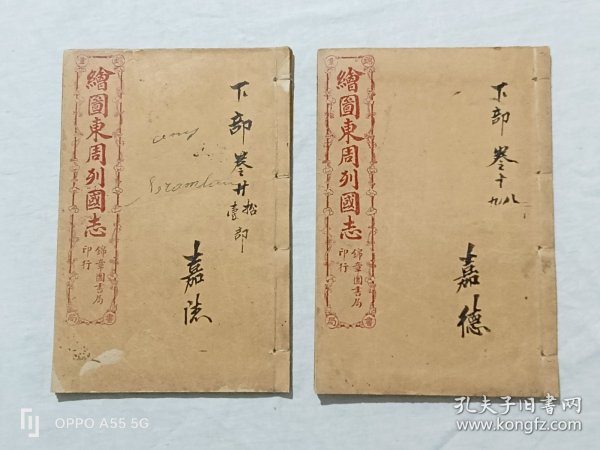 繪圖東周列國志
錦章圖書局
印行
下部 卷廿拾
壹部
嘉
繪圖東周列國志
錦章圖書局
印行
下部 卷十八
九
嘉德
OPPO A55 5G
孔夫子旧书网
www.kongfz.com